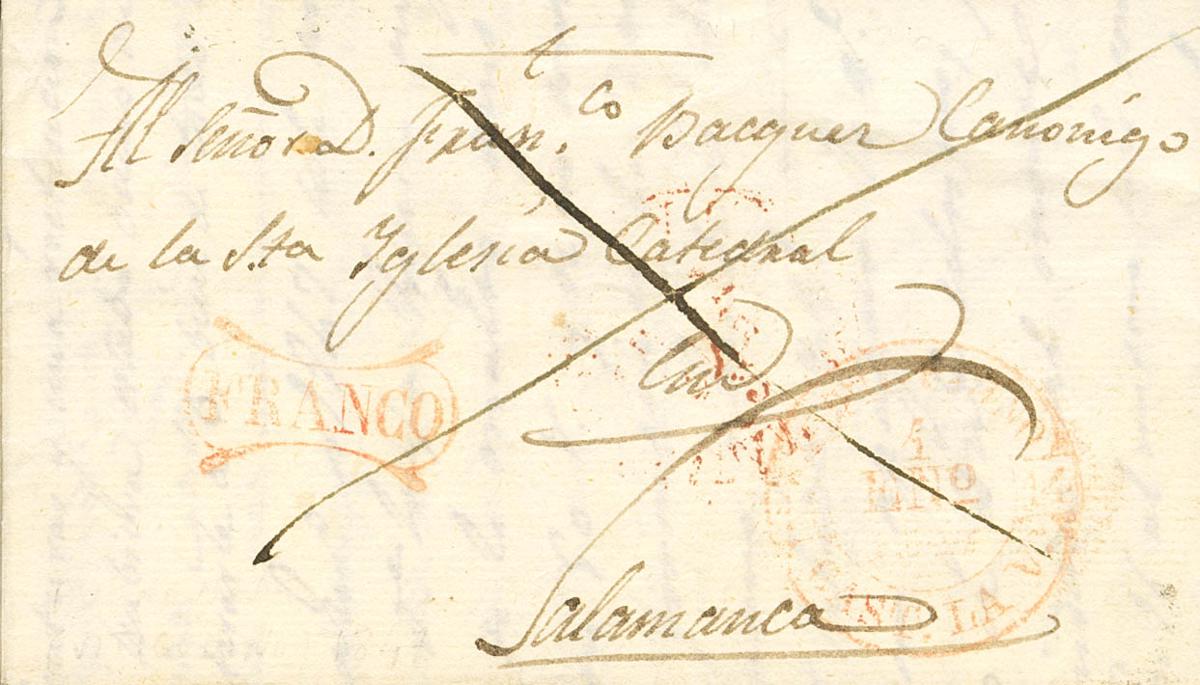 t
Al Señor D. Fran.co Bacquer Canonigo
de la Sta Yglesia Catedral
En
FRANCO
4
ENO
CAST. LA V
Salamanca